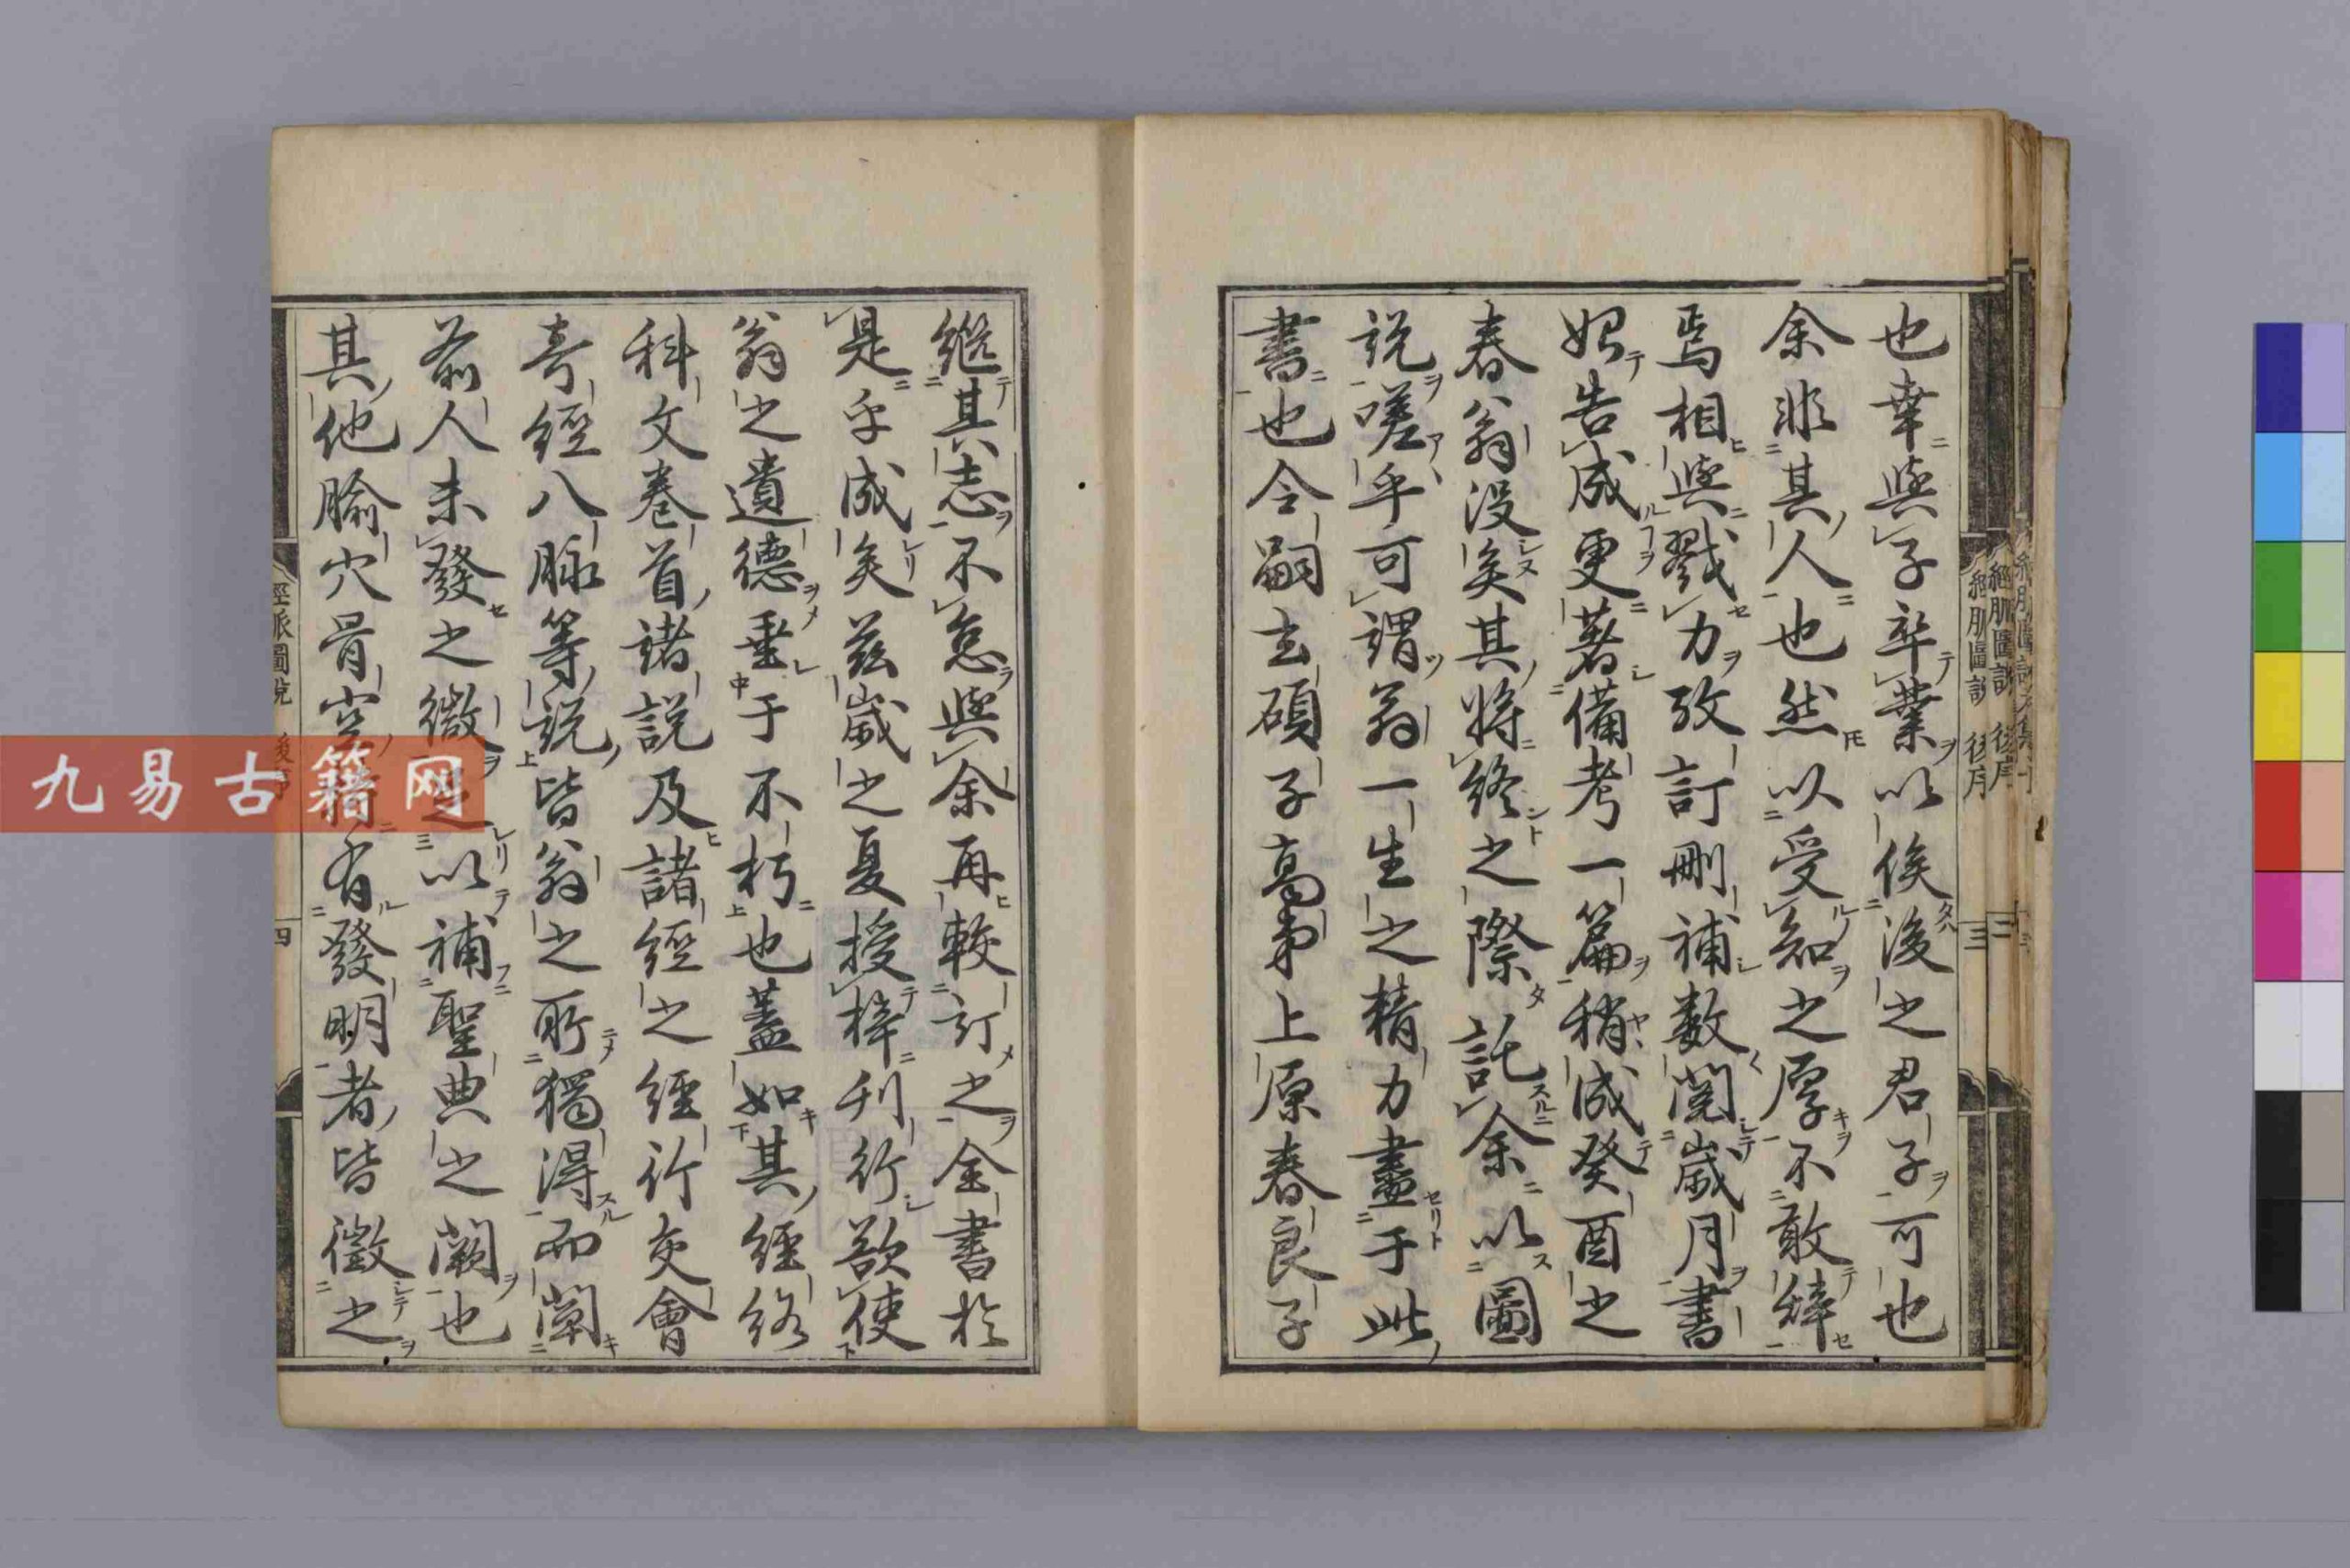 也幸與子卒業以俟後之君子可也
余非其人也然以受知之厚不敢辞
焉相與戮力攷訂刪補数閲歳月書
始告成更著備考一篇稍成癸酉之
春翁没矣其将終之際託余以圖
説嗟乎可謂翁一生之精力盡于此
書也令嗣玄碩子高弟上原春良子
継其志不怠與余再較訂之全書於
是乎成矣茲歳之夏授梓刊行欲使
翁之遺德垂于不朽也蓋如其經絡
科文巻首諸説及諸經之經行交會
奇經八脉等説皆翁之所獨得而闡
前人未發之微以補聖典之闕也
其他腧穴骨空有發明者皆徴之
經脈圖説 後序 三
經脈圖説 後序 四
九易古籍网